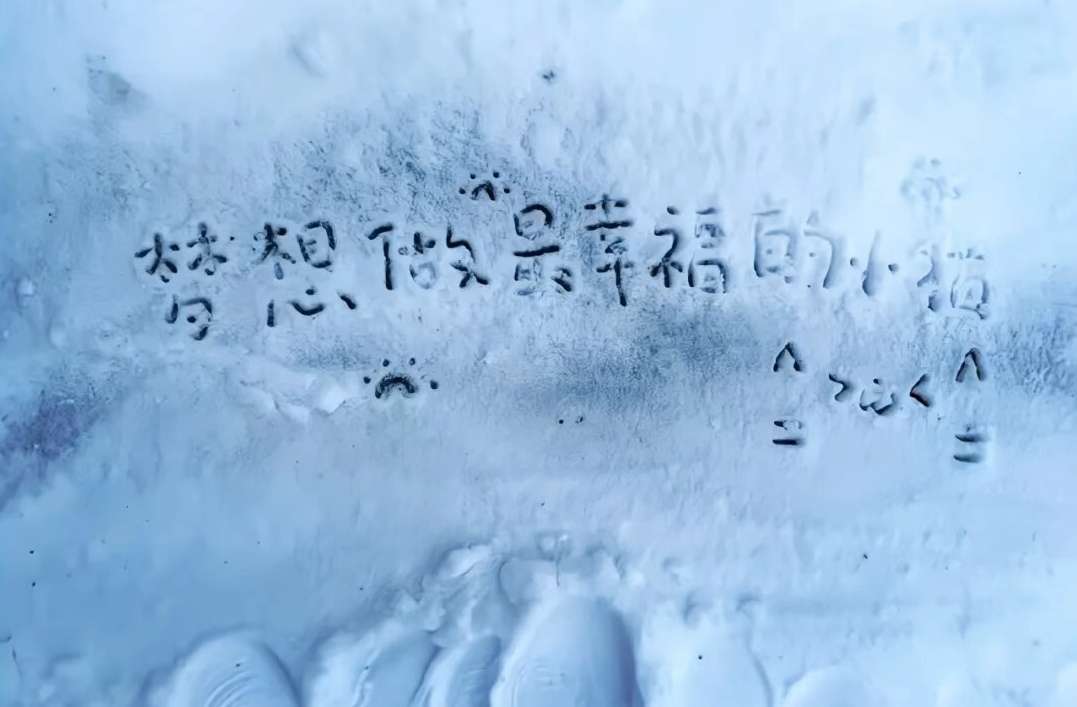 梦想做最幸福的小猫